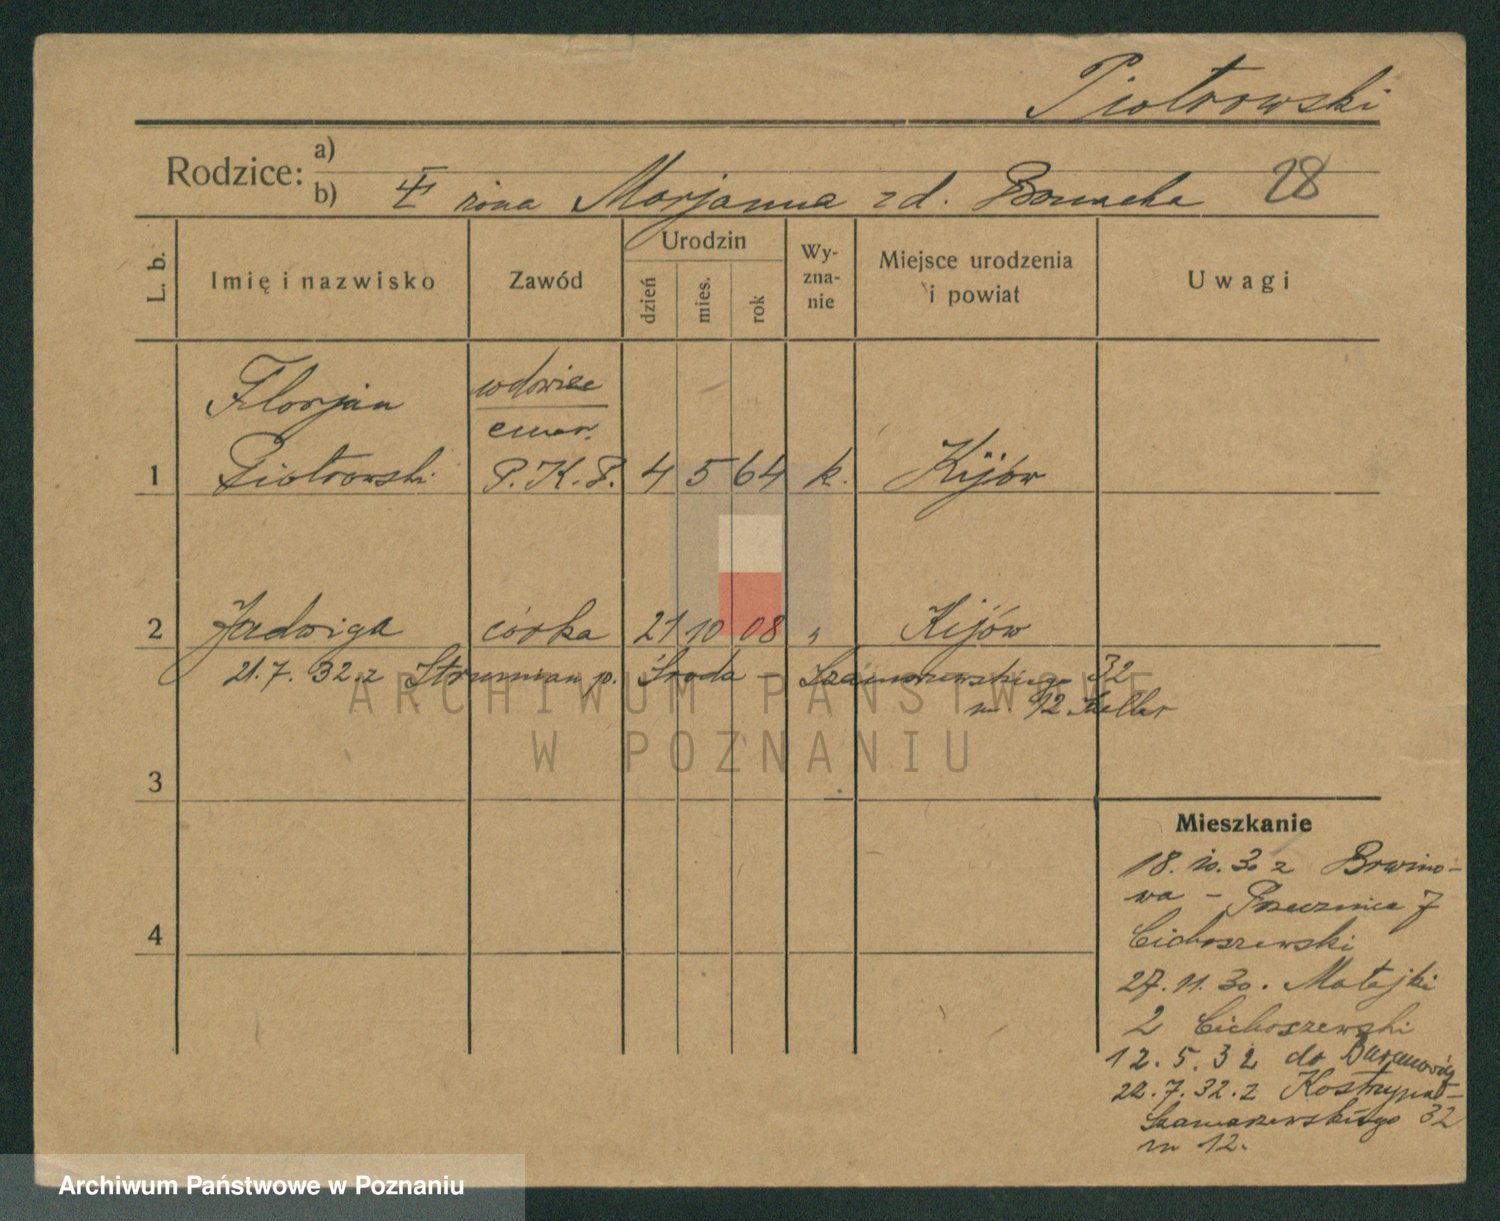 Piotrowski
Rodzice: a)
b) żona Marjanna zd. 28
L. b. Imię i nazwisko Zawód Urodzin dzień mies. rok Wy-zna-nie Miejsce urodzenia i powiat Uwagi
Florjan wdowiec
emer.
1 Piotrowski P.K.P. 4 5 64 k. Kijów
2 Jadwiga córka 21 10 08 " Kijów
21.7.32. z p. Środa - 32
m. 12
3
4
Mieszkanie
18.10.30 z Brwino-
wa - 7
Cichoszewski
27.11.30. Matejki
2 Cichoszewski
12.5.32 do
22.7.32. z
Szamarzewskiego 32
m 12.
ARCHIWUM PAŃSTWOWE
W POZNANIU
Archiwum Państwowe w Poznaniu